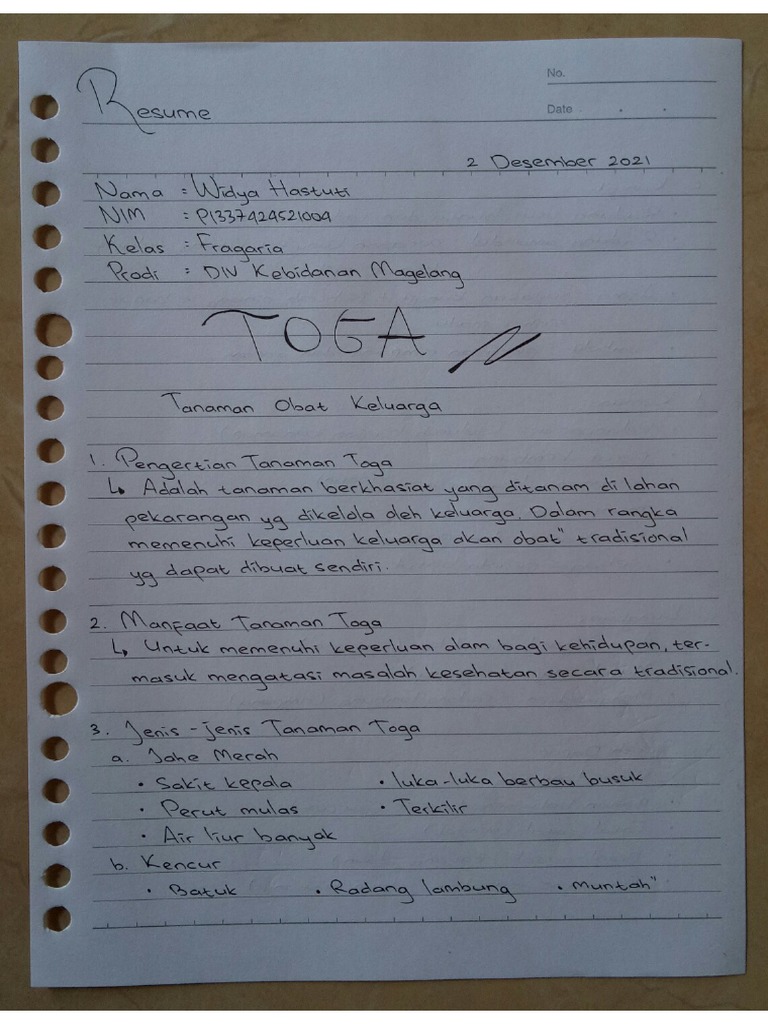 No.
Resume
Date
2 Desember 2021
Nama : Widya Hastuti
NIM : P1337424521004
Kelas : Fragaria
Prodi : DIV Kebidanan Magelang
TOGA
Tanaman Obat Keluarga
1. Pengertian Tanaman Toga
↳ Adalah tanaman berkhasiat yang ditanam di lahan
pekarangan yg dikelola oleh keluarga. Dalam rangka
memenuhi keperluan keluarga akan obat" tradisional
yg dapat dibuat sendiri.
2. Manfaat Tanaman Toga
↳ Untuk memenuhi keperluan alam bagi kehidupan, ter-
masuk mengatasi masalah kesehatan secara tradisional.
3. Jenis - jenis Tanaman Toga
a. Jahe Merah
• Sakit kepala • luka-luka berbau busuk
• Perut mulas • Terkilir
• Air liur banyak
b. Kencur
• Batuk • Radang lambung • muntah"